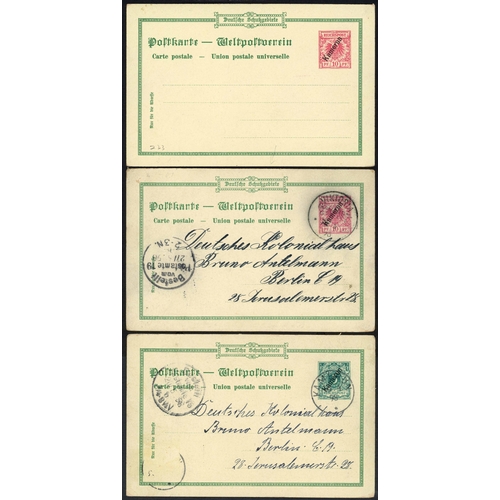 Deutsche Schutzgebiete
Postkarte — Weltpostverein
Carte postale — Union postale universelle
Kamerun
Nur für die Adresse
Deutsche Schutzgebiete
Postkarte — Weltpostverein
Carte postale — Union postale universelle
Kamerun
Deutsches Kolonialhaus
Bruno Antelmann
Berlin C 19
28 Jerusalemerstr. 28
Bestellt
vom
Postamte 19
2-3N.
Nur für die Adresse
Deutsche Schutzgebiete
Postkarte — Weltpostverein
Carte postale — Union postale universelle
Deutsches Kolonialhaus
Bruno Antelmann
Berlin C.
28 Jerusalemerstr. 28.
Nur für die Adresse